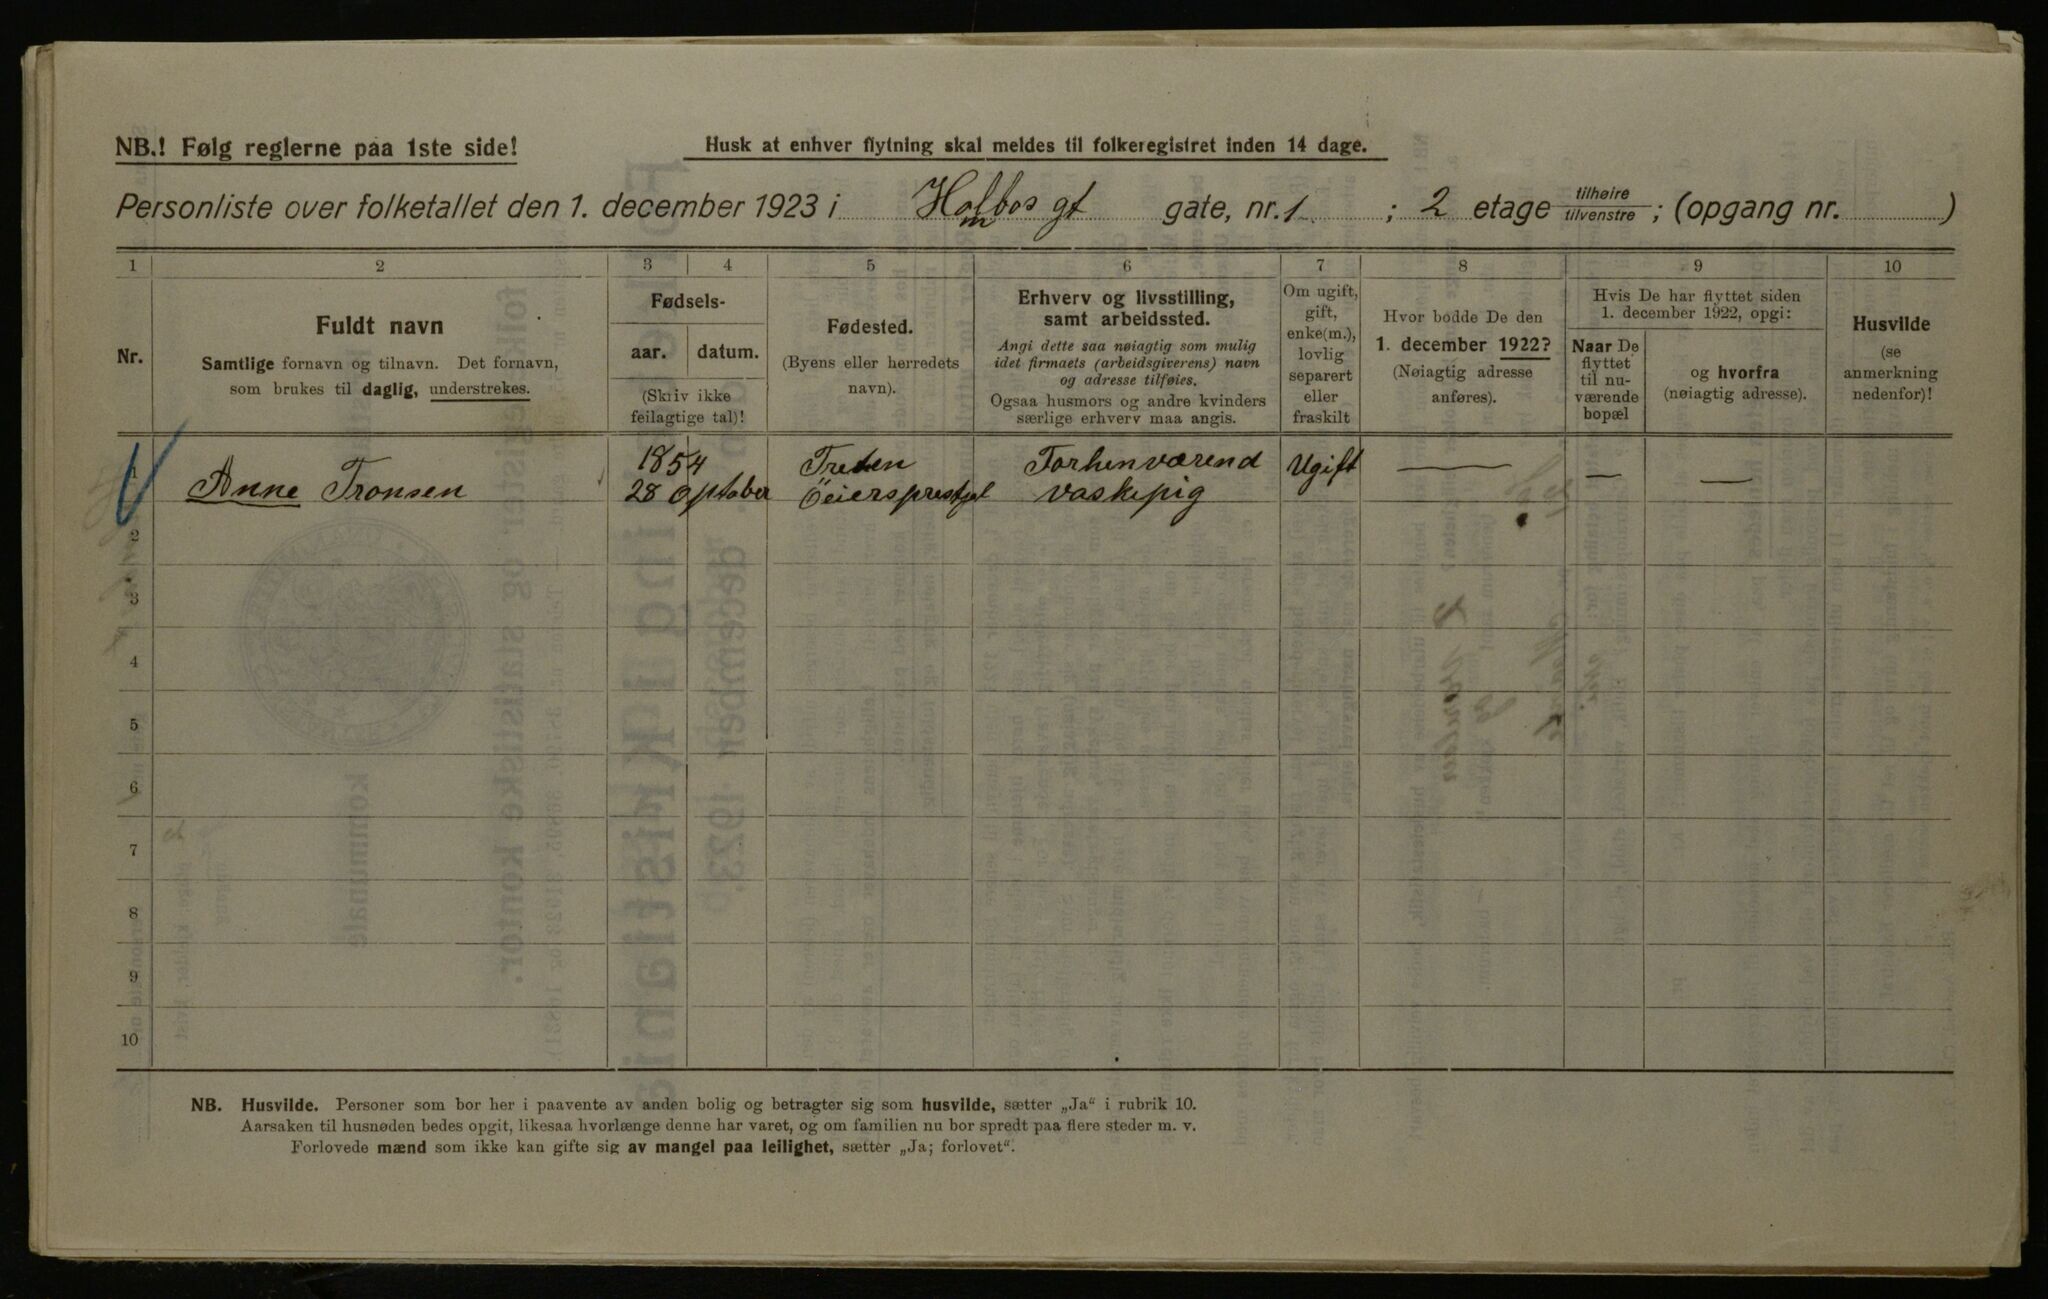 NB.! Følg reglerne paa 1ste side!
Husk at enhver flytning skal meldes til folkeregistret inden 14 dage.
Personliste over folketallet den 1. december 1923 i Holmbos gt gate, nr. 1 ; 2 etage tilhøire tilvenstre ; (opgang nr. )
1 2 3 4 5 6 7 8 9 10
Nr.
Fuldt navn
Samtlige fornavn og tilnavn. Det fornavn,
som brukes til daglig, understrekes.
Fødsels-
aar. datum.
(Skriv ikke
feilagtige tal)!
Fødested.
(Byens eller herredets
navn).
Erhverv og livsstilling,
samt arbeidssted.
Angi dette saa nøiagtig som mulig
idet firmaets (arbeidsgiverens) navn
og adresse tilføies.
Ogsaa husmors og andre kvinders
særlige erhverv maa angis.
Om ugift,
gift,
enke(m.),
lovlig
separert
eller
fraskilt
Hvor bodde De den
1. december 1922?
(Nøiagtig adresse
anføres).
Hvis De har flyttet siden
1. december 1922, opgi:
Naar De
flyttet
til nu-
værende
bopæl
og hvorfra
(nøiagtig adresse).
Husvilde
(se
anmerkning
nedenfor)!
1
Anne Tronsen
1854
28 Optober
Treten
Öeiersprestjel
Forhenværend
vaskepig
Ugift
—
—
—
2
3
4
5
6
7
8
9
10
NB. Husvilde. Personer som bor her i paavente av anden bolig og betragter sig som husvilde, sætter „Ja“ i rubrik 10.
Aarsaken til husnøden bedes opgit, likesaa hvorlænge denne har varet, og om familien nu bor spredt paa flere steder m. v.
Forlovede mænd som ikke kan gifte sig av mangel paa leilighet, sætter „Ja; forlovet“.